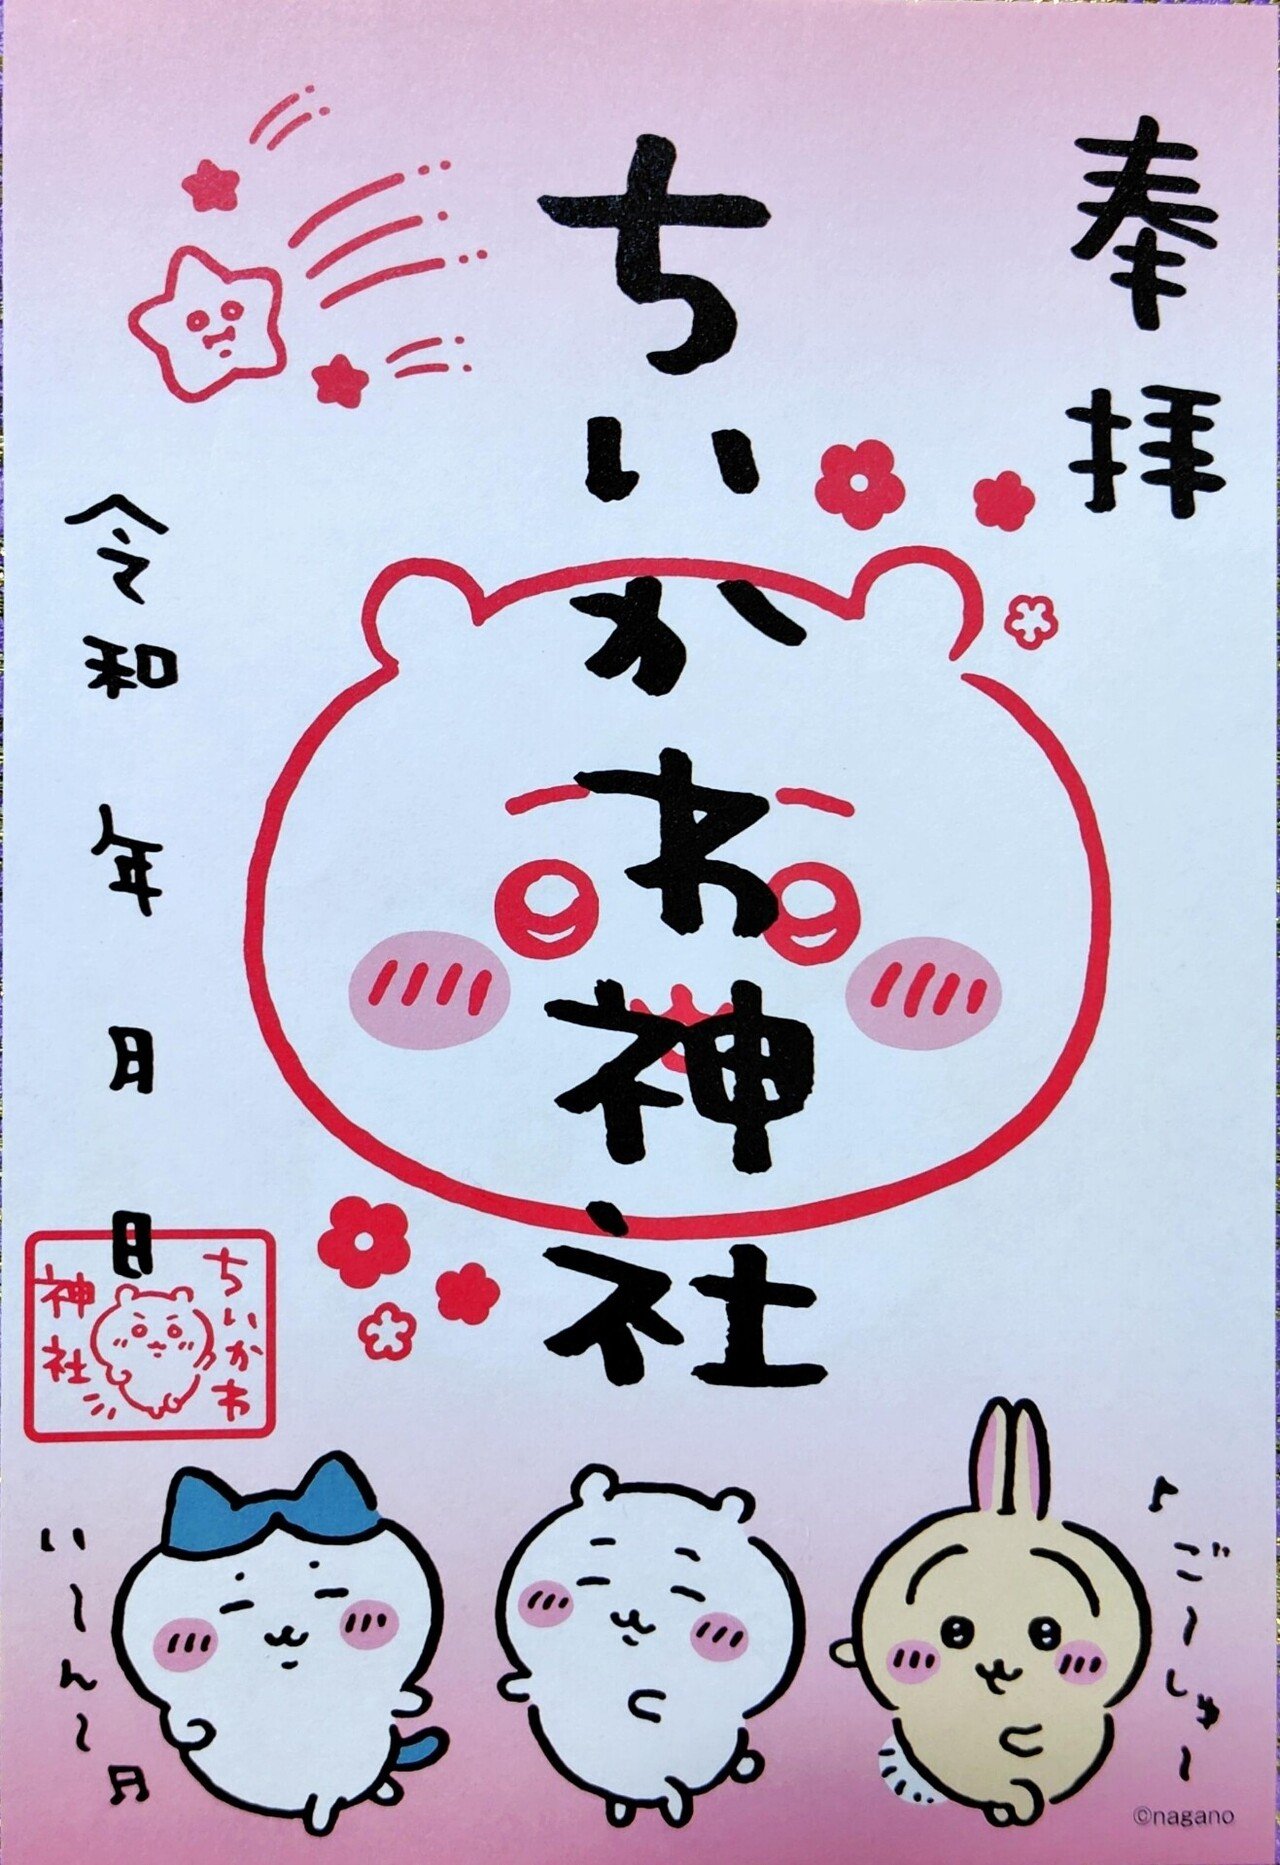 奉拝
ちいかわ神社
令和 年 月 日
ちいかわ
神社
♪ごーしゅー
いーんー♬
©nagano